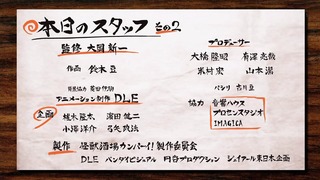 本日のスタッフ その2
監修 大岡新一
作画 鈴木亘
背景協力 菊田伊明
アニメーション制作 DLE
企画
植木敬太 濱田健二
小澤洋介 弓矢政法
プロデューサー
大橋隆昭 有澤亮哉
米村宏 山本潔
パシリ 古川亘
協力 音響ハウス
プロセンスタジオ
IMAGICA
製作 怪獣酒場カンパーイ!製作委員会
DLE バンダイビジュアル 円谷プロダクション ジェイアール東日本企画